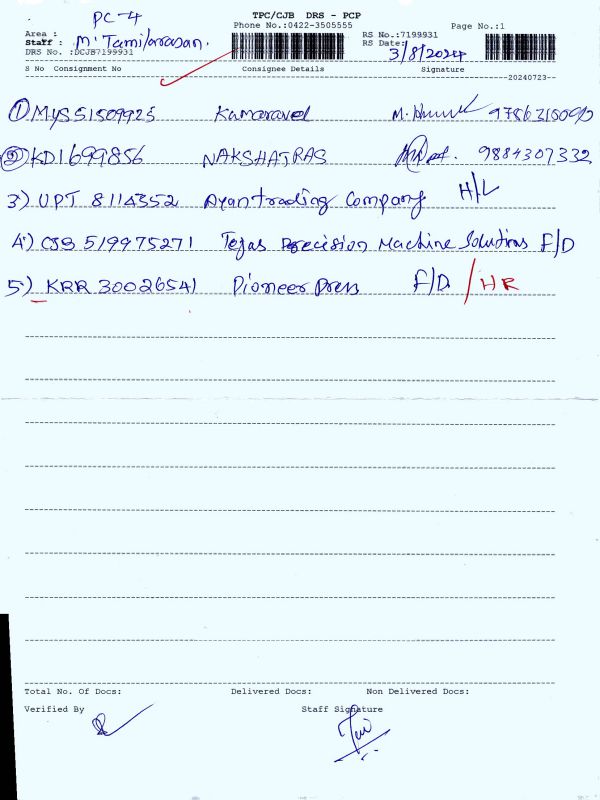 PC-4
TPC/CJB DRS - PCP
Phone No.:0422-3505555
Page No.:1
Area :
Staff : M. Tamilarasan.
RS No.:7199931
RS Date: 3/8/2024
DRS No. :DCJB7199931
S No Consignment No Consignee Details Signature
20240723
① MYS51509925 Kumaravel 9786315090
② KDI699856 NAKSHATRAS 9884307332
3) UPT 8114352 Ayantrading Company H/L
4) CJB 519975271 Tejas Precision Machine Solutions F/D
5) KRR 30026541 Pioneer Press F/D / HR
Total No. Of Docs: Delivered Docs: Non Delivered Docs:
Verified By Staff Signature